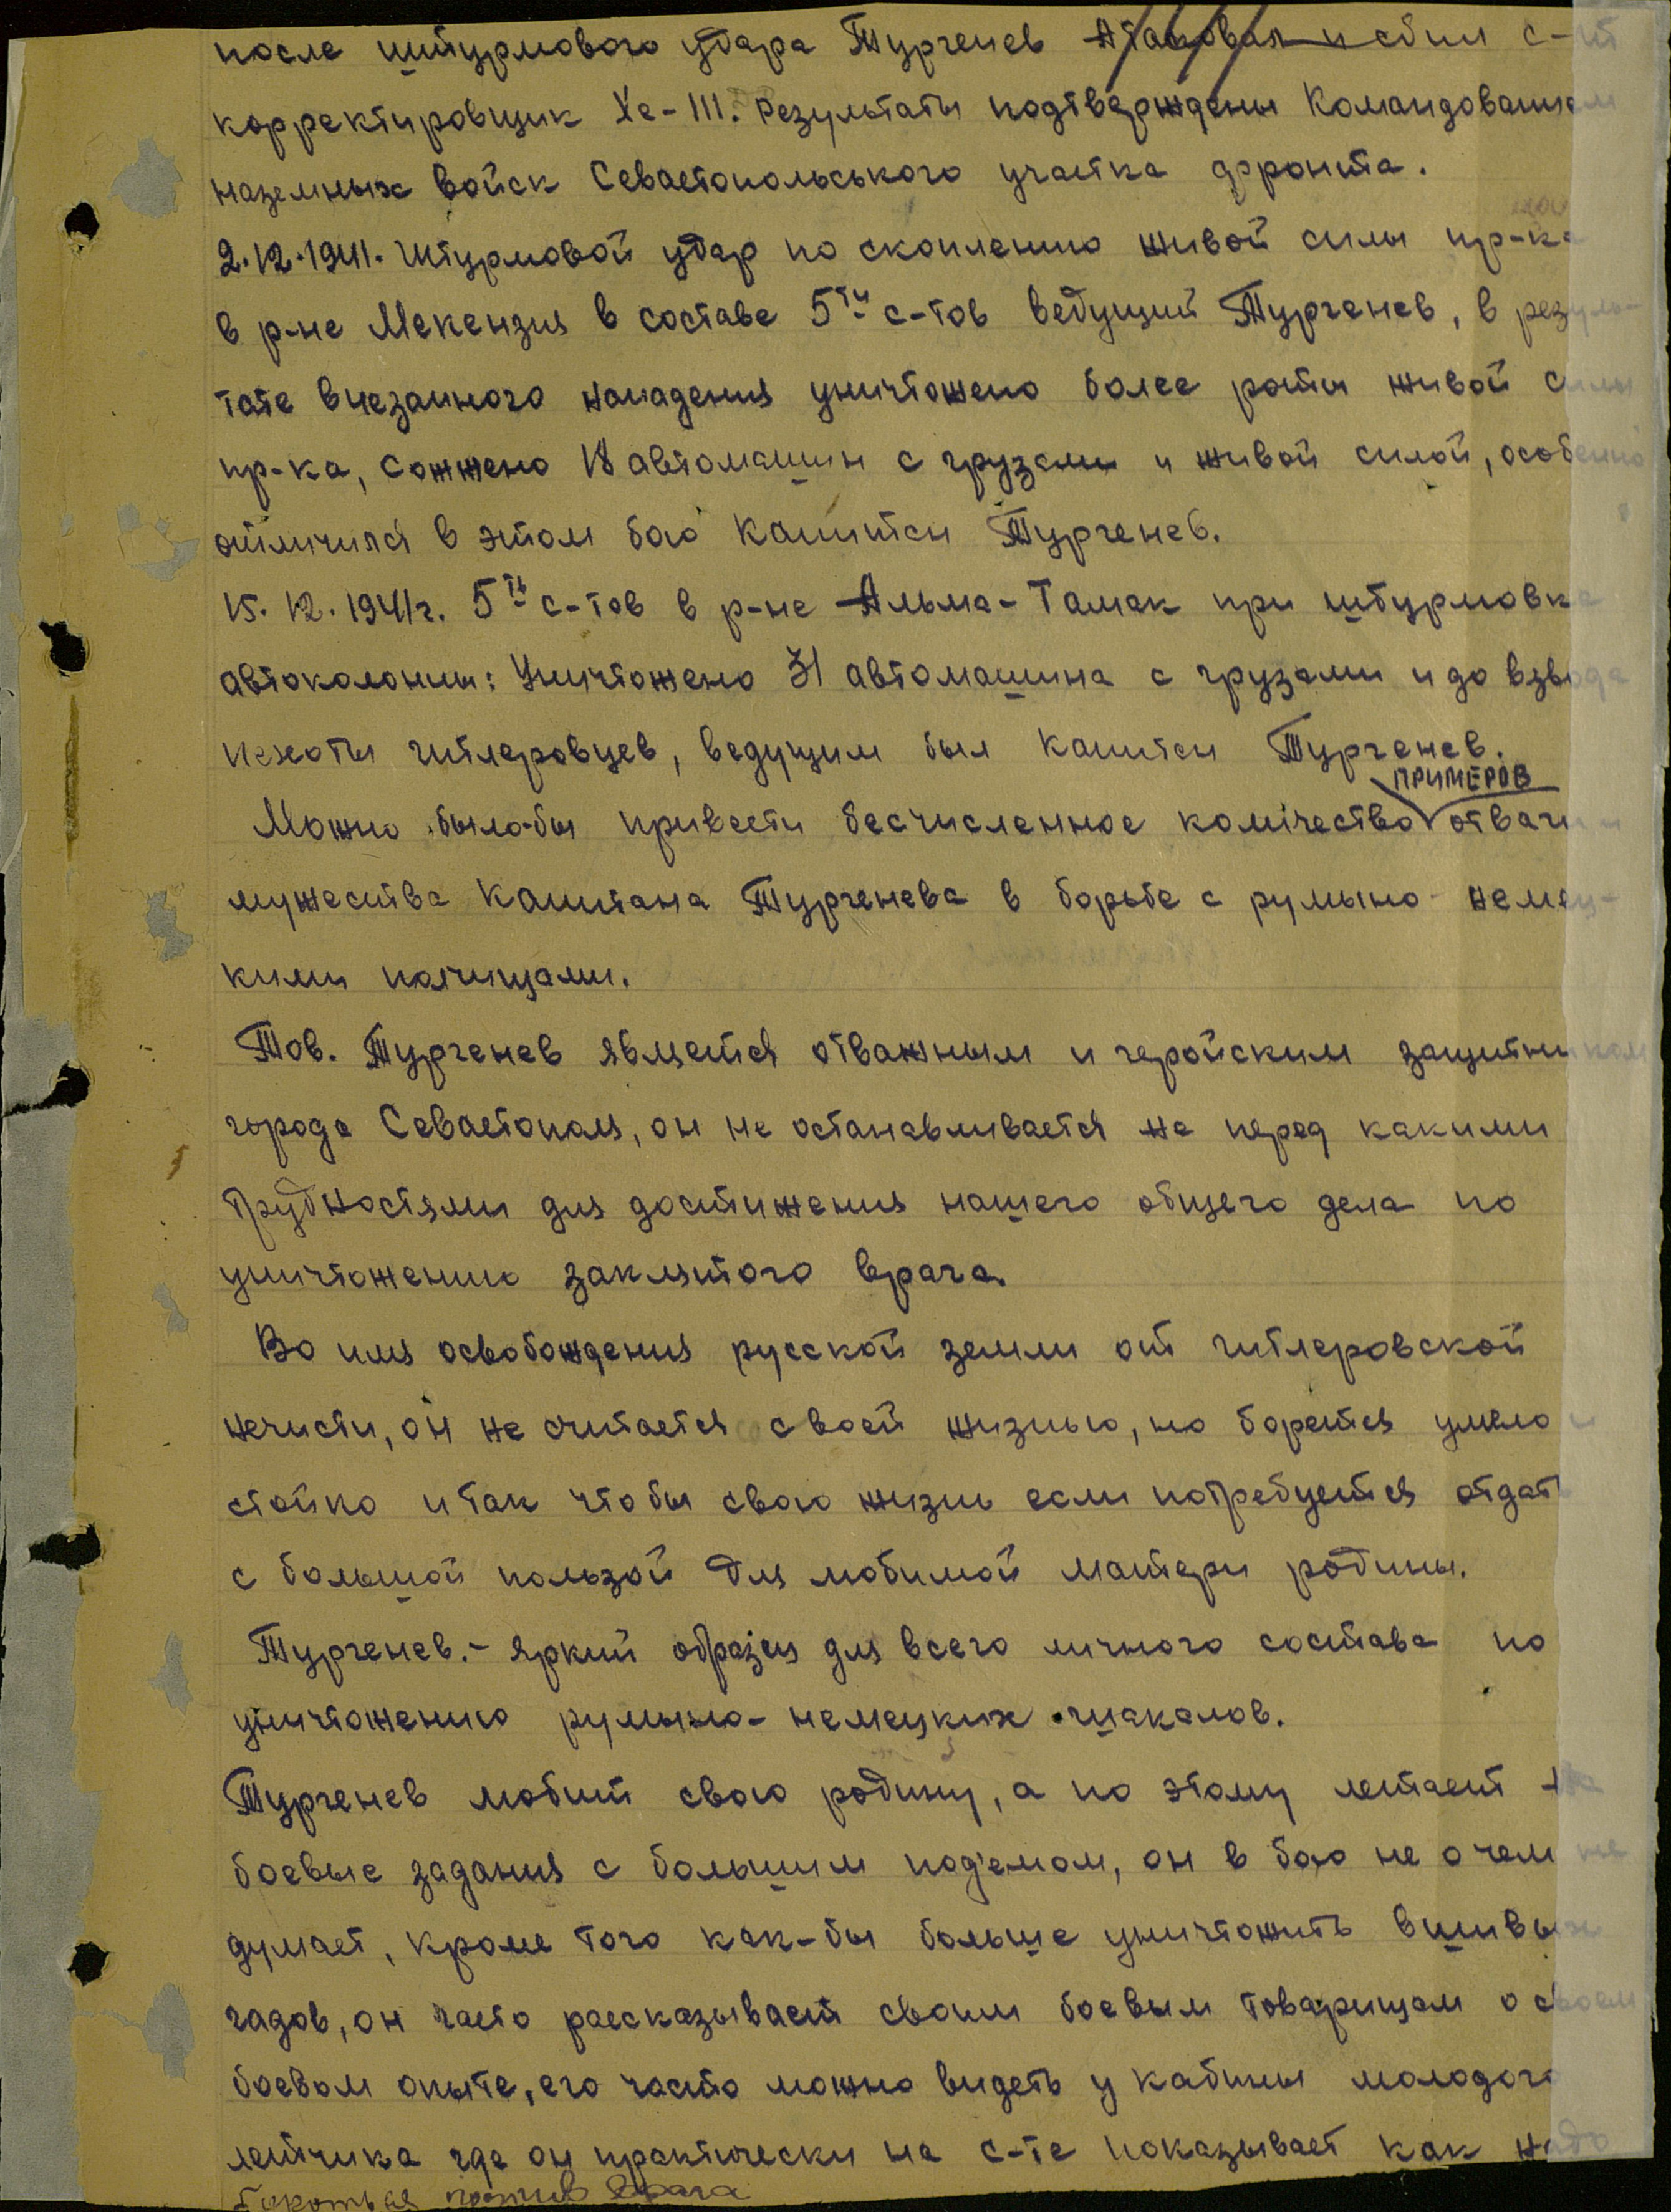 после штурмового удара Тургенев Атаковал и сбил с-т
корректировщик Хе-111. Результаты подтверждены Командованием
наземных войск Севастопольського участка фронта.
2.12.1941. Штурмовой удар по скоплению живой силы пр-ка
в р-не Мекензия в составе 5ти с-тов ведущий Тургенев, в резуль-
тате внезапного нападения уничтожено более роты живой силы
пр-ка, сожжено 18 автомашин с грузами и живой силой, особенно
отличился в этом бою Капитан Тургенев.
15.12.1941г. 5ть с-тов в р-не Альма-Тамак при штурмовке
автоколонны: Уничтожено 31 автомашина с грузами и до взвода
пехоты гитлеровцев, ведущим был Капитан Тургенев.
ПРИМЕРОВ
Можно было-бы привести бесчисленное количество отваги и
мужества Капитана Тургенева в борьбе с румыно-немец-
кими полчищами.
Тов. Тургенев является отважным и геройским защитником
города Севастополя, он не останавливается не перед какими
трудностями для достижения нашего общего дела по
уничтожению заклятого врага.
Во имя освобождения русской земли от гитлеровской
нечисти, он не считается с своей жизнью, но борется умело и
стойко и так чтобы свою жизнь если потребуется отдать
с большой пользой для любимой матери родины.
Тургенев.- яркий образец для всего личного состава по
уничтожению румыно-немецких шакалов.
Тургенев любит свою родину, а по этому летает на
боевые задания с большим под'емом, он в бою не о чем не
думает, кроме того как-бы больше уничтожить вшивых
гадов, он часто рассказывает своим боевым товарищам о своем
боевом опыте, его часто можно видеть у кабины молодого
летчика где он практически на с-те показывает как надо
против врага